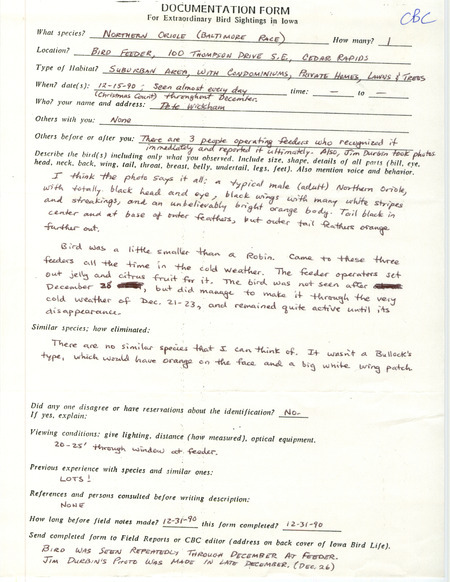 DOCUMENTATION FORM
For Extraordinary Bird Sightings in Iowa
CBC
What species? NORTHERN ORIOLE (BALTIMORE RACE) How many? 1
Location? BIRD FEEDER, 100 THOMPSON DRIVE S.E., CEDAR RAPIDS
Type of Habitat? SUBURBAN AREA, WITH CONDOMINIUMS, PRIVATE HOMES, LAWNS & TREES
When? date(s): 12-15-90; Seen almost every day time: — to —
(Christmas Count) throughout December.
Who? your name and address: Pete Wickham
Others with you: None
Others before or after you: There are 3 people operating feeders who recognized it
immediately and reported it ultimately. Also, Jim Durbin took photos.
Describe the bird(s) including only what you observed. Include size, shape, details of all parts (bill, eye,
head, neck, back, wing, tail, throat, breast, belly, undertail, legs, feet). Also mention voice and behavior.
I think the photo says it all: a typical male (adult) Northern Oriole,
with totally black head and eye, black wings with many white stripes
and streakings, and an unbelievably bright orange body. Tail black in
center and at base of outer feathers, but outer tail feathers orange
further out.
Bird was a little smaller than a Robin. Came to these three
feeders all the time in the cold weather. The feeder operators set
out jelly and citrus fruit for it. The bird was not seen after
December 28, but did manage to make it through the very
cold weather of Dec. 21-23, and remained quite active until its
disappearance.
Similar species; how eliminated:
There are no similar species that I can think of. It wasn't a Bullock's
type, which would have orange on the face and a big white wing patch
Did any one disagree or have reservations about the identification? No-
If yes, explain:
Viewing conditions: give lighting, distance (how measured), optical equipment.
20-25' through window at feeder.
Previous experience with species and similar ones:
LOTS!
References and persons consulted before writing description:
NONE
How long before field notes made? 12-31-90 this form completed? 12-31-90
Send completed form to Field Reports or CBC editor (address on back cover of Iowa Bird Life).
BIRD WAS SEEN REPEATEDLY THROUGH DECEMBER AT FEEDER.
JIM DURBIN'S PHOTO WAS MADE IN LATE DECEMBER. (DEC. 26)